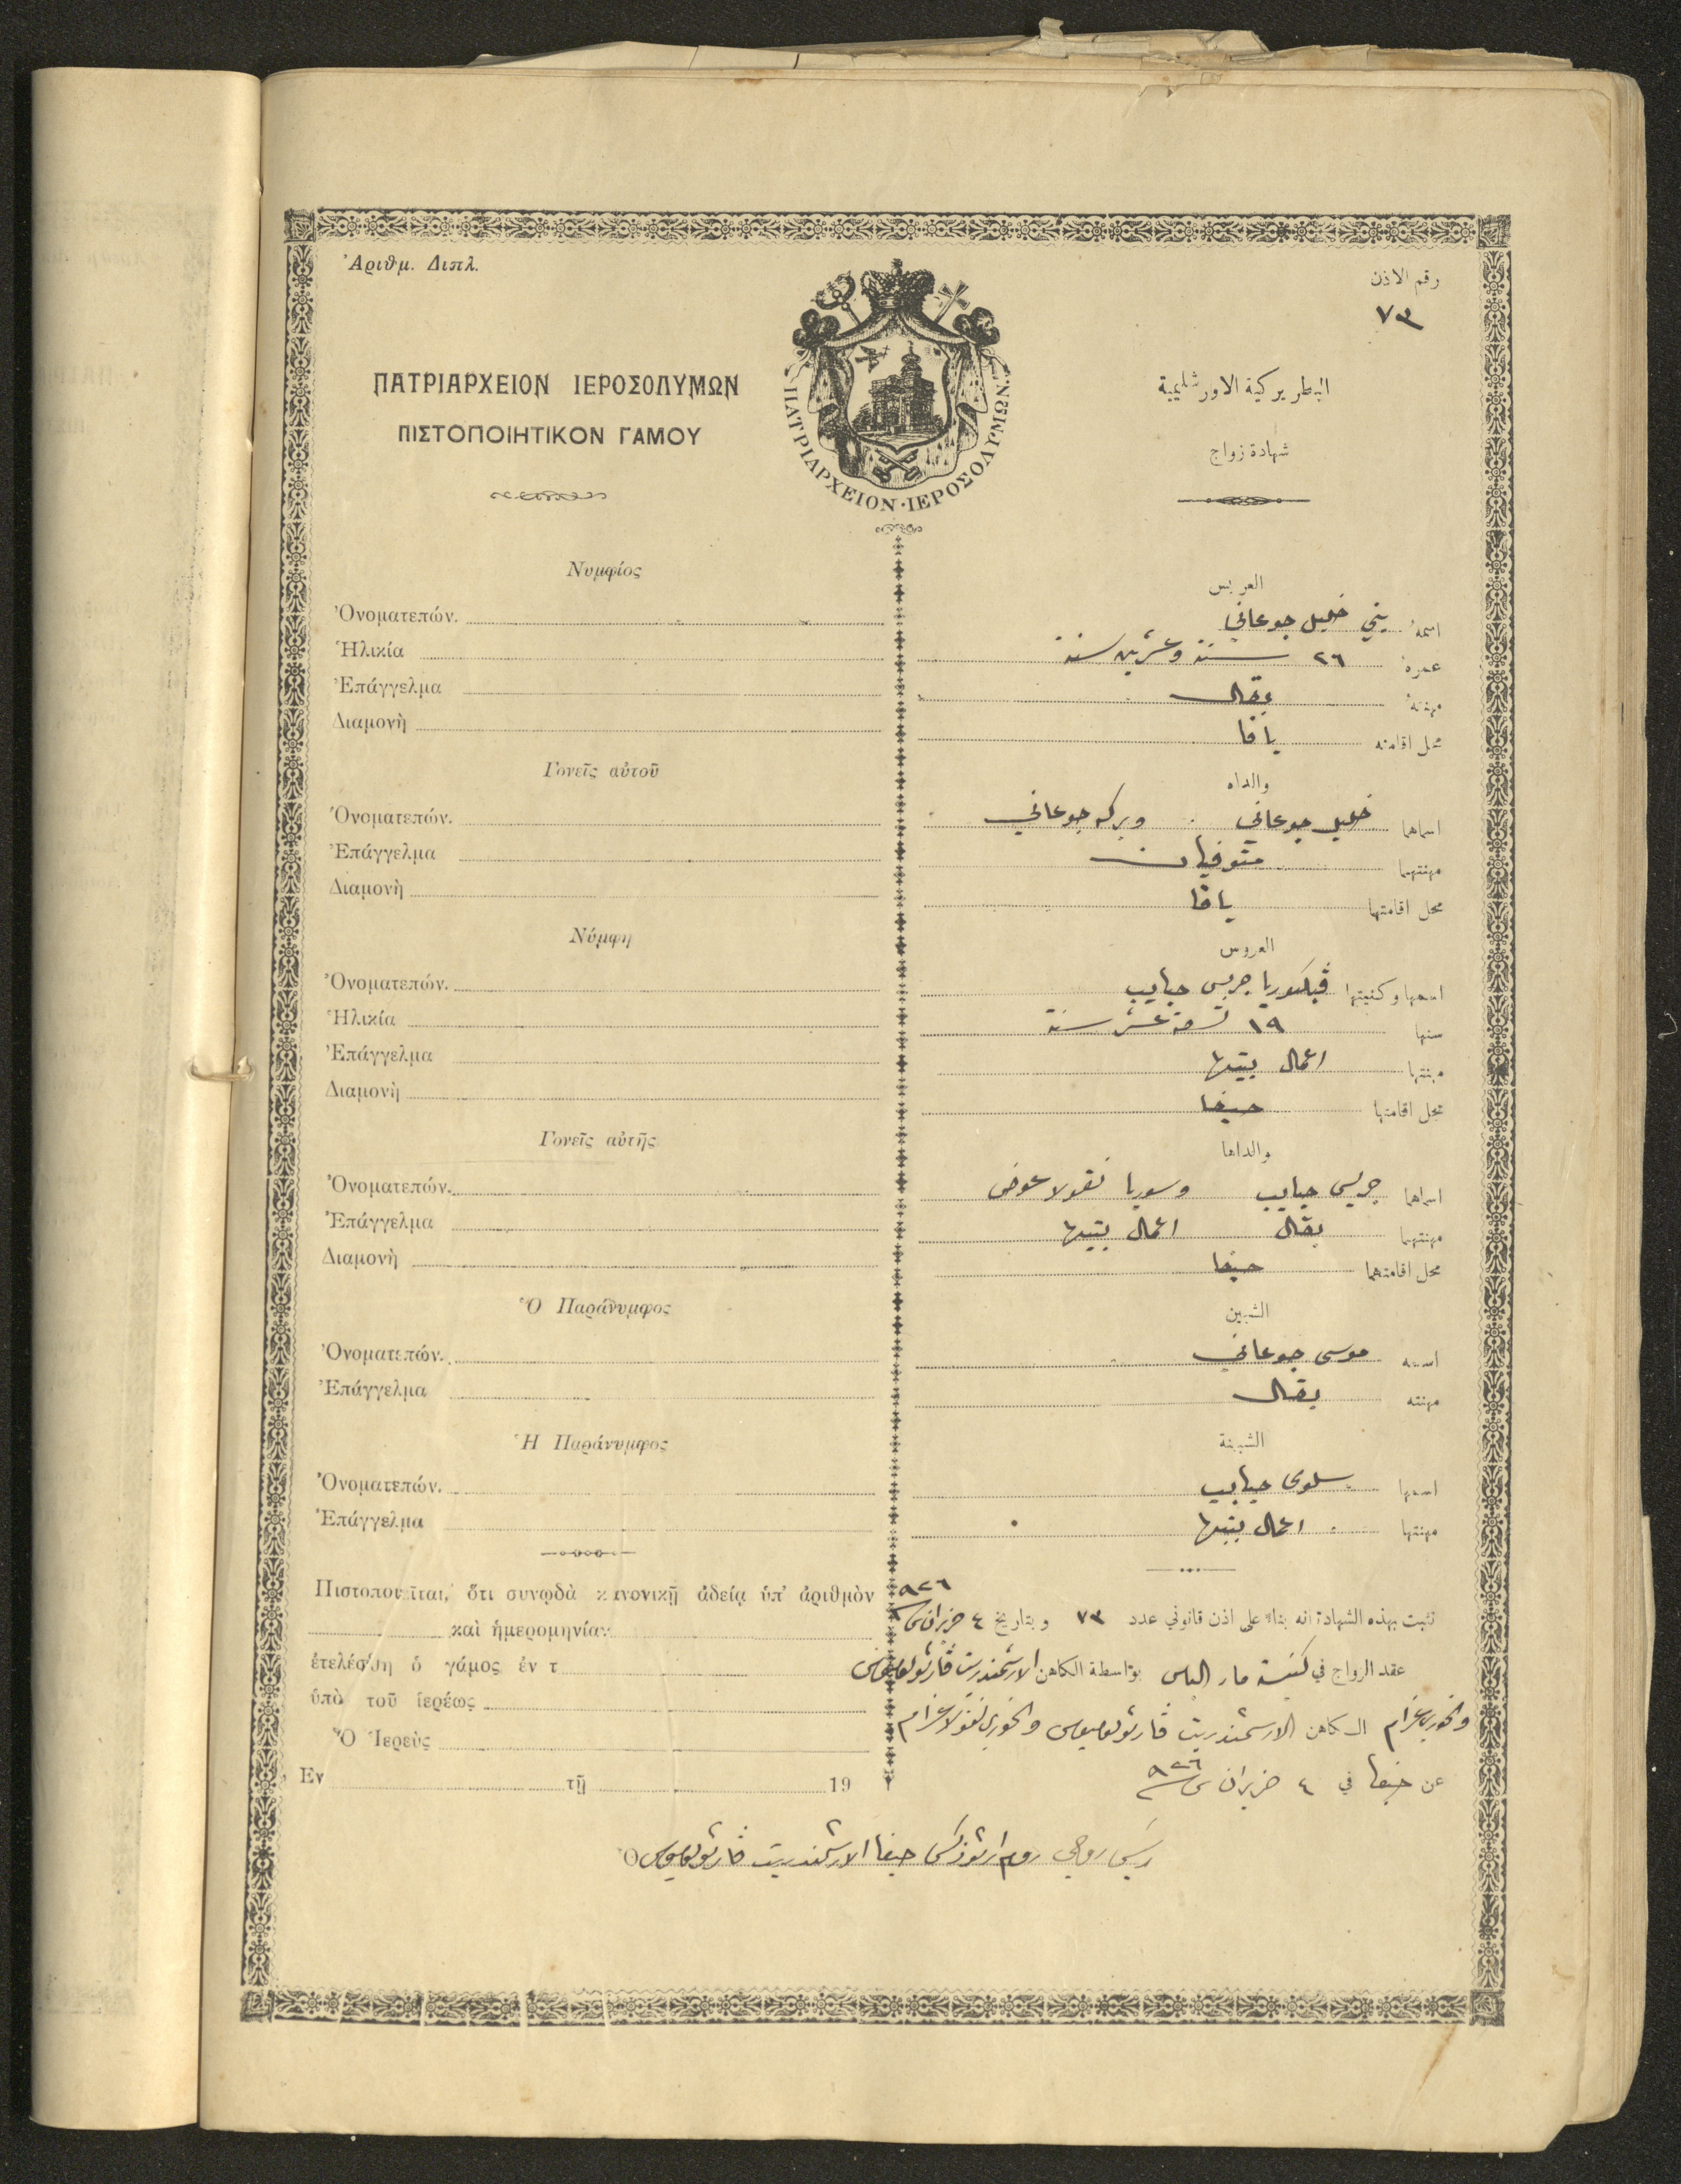 Ἀριθμ. Διπλ.
رقم الاذن
٧٣
ΠΑΤΡΙΑΡΧΕΙΟΝ ΙΕΡΟΣΟΛΥΜΩΝ
ΠΙΣΤΟΠΟΙΗΤΙΚΟΝ ΓΑΜΟΥ
ΠΑΤΡΙΑΡΧΕΙΟΝ·ΙΕΡΟΣΟΛΥΜΩΝ
البطريركية الاورشليمية
شهادة زواج
Νυμφίος
Ὀνοματεπών.
Ἡλικία
Ἐπάγγελμα
Διαμονὴ
Γονεῖς αὐτοῦ
Ὀνοματεπών.
Ἐπάγγελμα
Διαμονὴ
Νύμφη
Ὀνοματεπών.
Ἡλικία
Ἐπάγγελμα
Διαμονὴ
Γονεῖς αὐτῆς
Ὀνοματεπών.
Ἐπάγγελμα
Διαμονὴ
Ὁ Παράνυμφος
Ὀνοματεπών.
Ἐπάγγελμα
Ἡ Παράνυμφος
Ὀνοματεπών.
Ἐπάγγελμα
Πιστοποιεῖται, ὅτι συνῳδὰ κανονικῇ ἀδείᾳ ὑπ' ἀριθμὸν
καὶ ἡμερομηνίαν
ἐτελέσθη ὁ γάμος ἐν τ
ὑπὸ τοῦ ἱερέως
Ὁ Ἱερεὺς
Ἐν τῇ 19
العريس
اسمهُ يني خليل جوعاني
عمرهُ ٢٦ ستة وعشرين سنة
مهنتهُ بقال
محل اقامته يافا
والداه
اسماهما خليل جوعاني وبركه جوعاني
مهنتهما متوفيان
محل اقامتهما يافا
العروس
اسمها وكنيتها ڤيكتوريا جريس حبايب
سنها ١٩ تسعة عشر سنة
مهنتها اعمال بيتها
محل اقامتها حيفا
والداها
اسماهما جريس حبايب وسوريا نقولا عوض
مهنتهما بقال اعمال بيتها
محل اقامتهما حيفا
الشبين
اسمه موسى جوعاني
مهنته بقال
الشبينة
اسمها سلوى حبايب
مهنتها اعمال بيتها
تثبت بهذه الشهادة انه بناء على اذن قانوني عدد ٧٣ وبتاريخ ٤ حزيران سنة ٩٢٦
عقد الزواج في كنيسة مار الياس بواسطة الكاهن الارشمندريت ڤارثولوميوس
والخوري عزام الكاهن الارشمندريت ڤارثولوميوس والخوري نقولا عزام
عن حيفا في ٤ حزيران سنة ٩٢٦
رئيس روحي روم ارثوذكس حيفا الارشمندريت ڤارثولوميوس